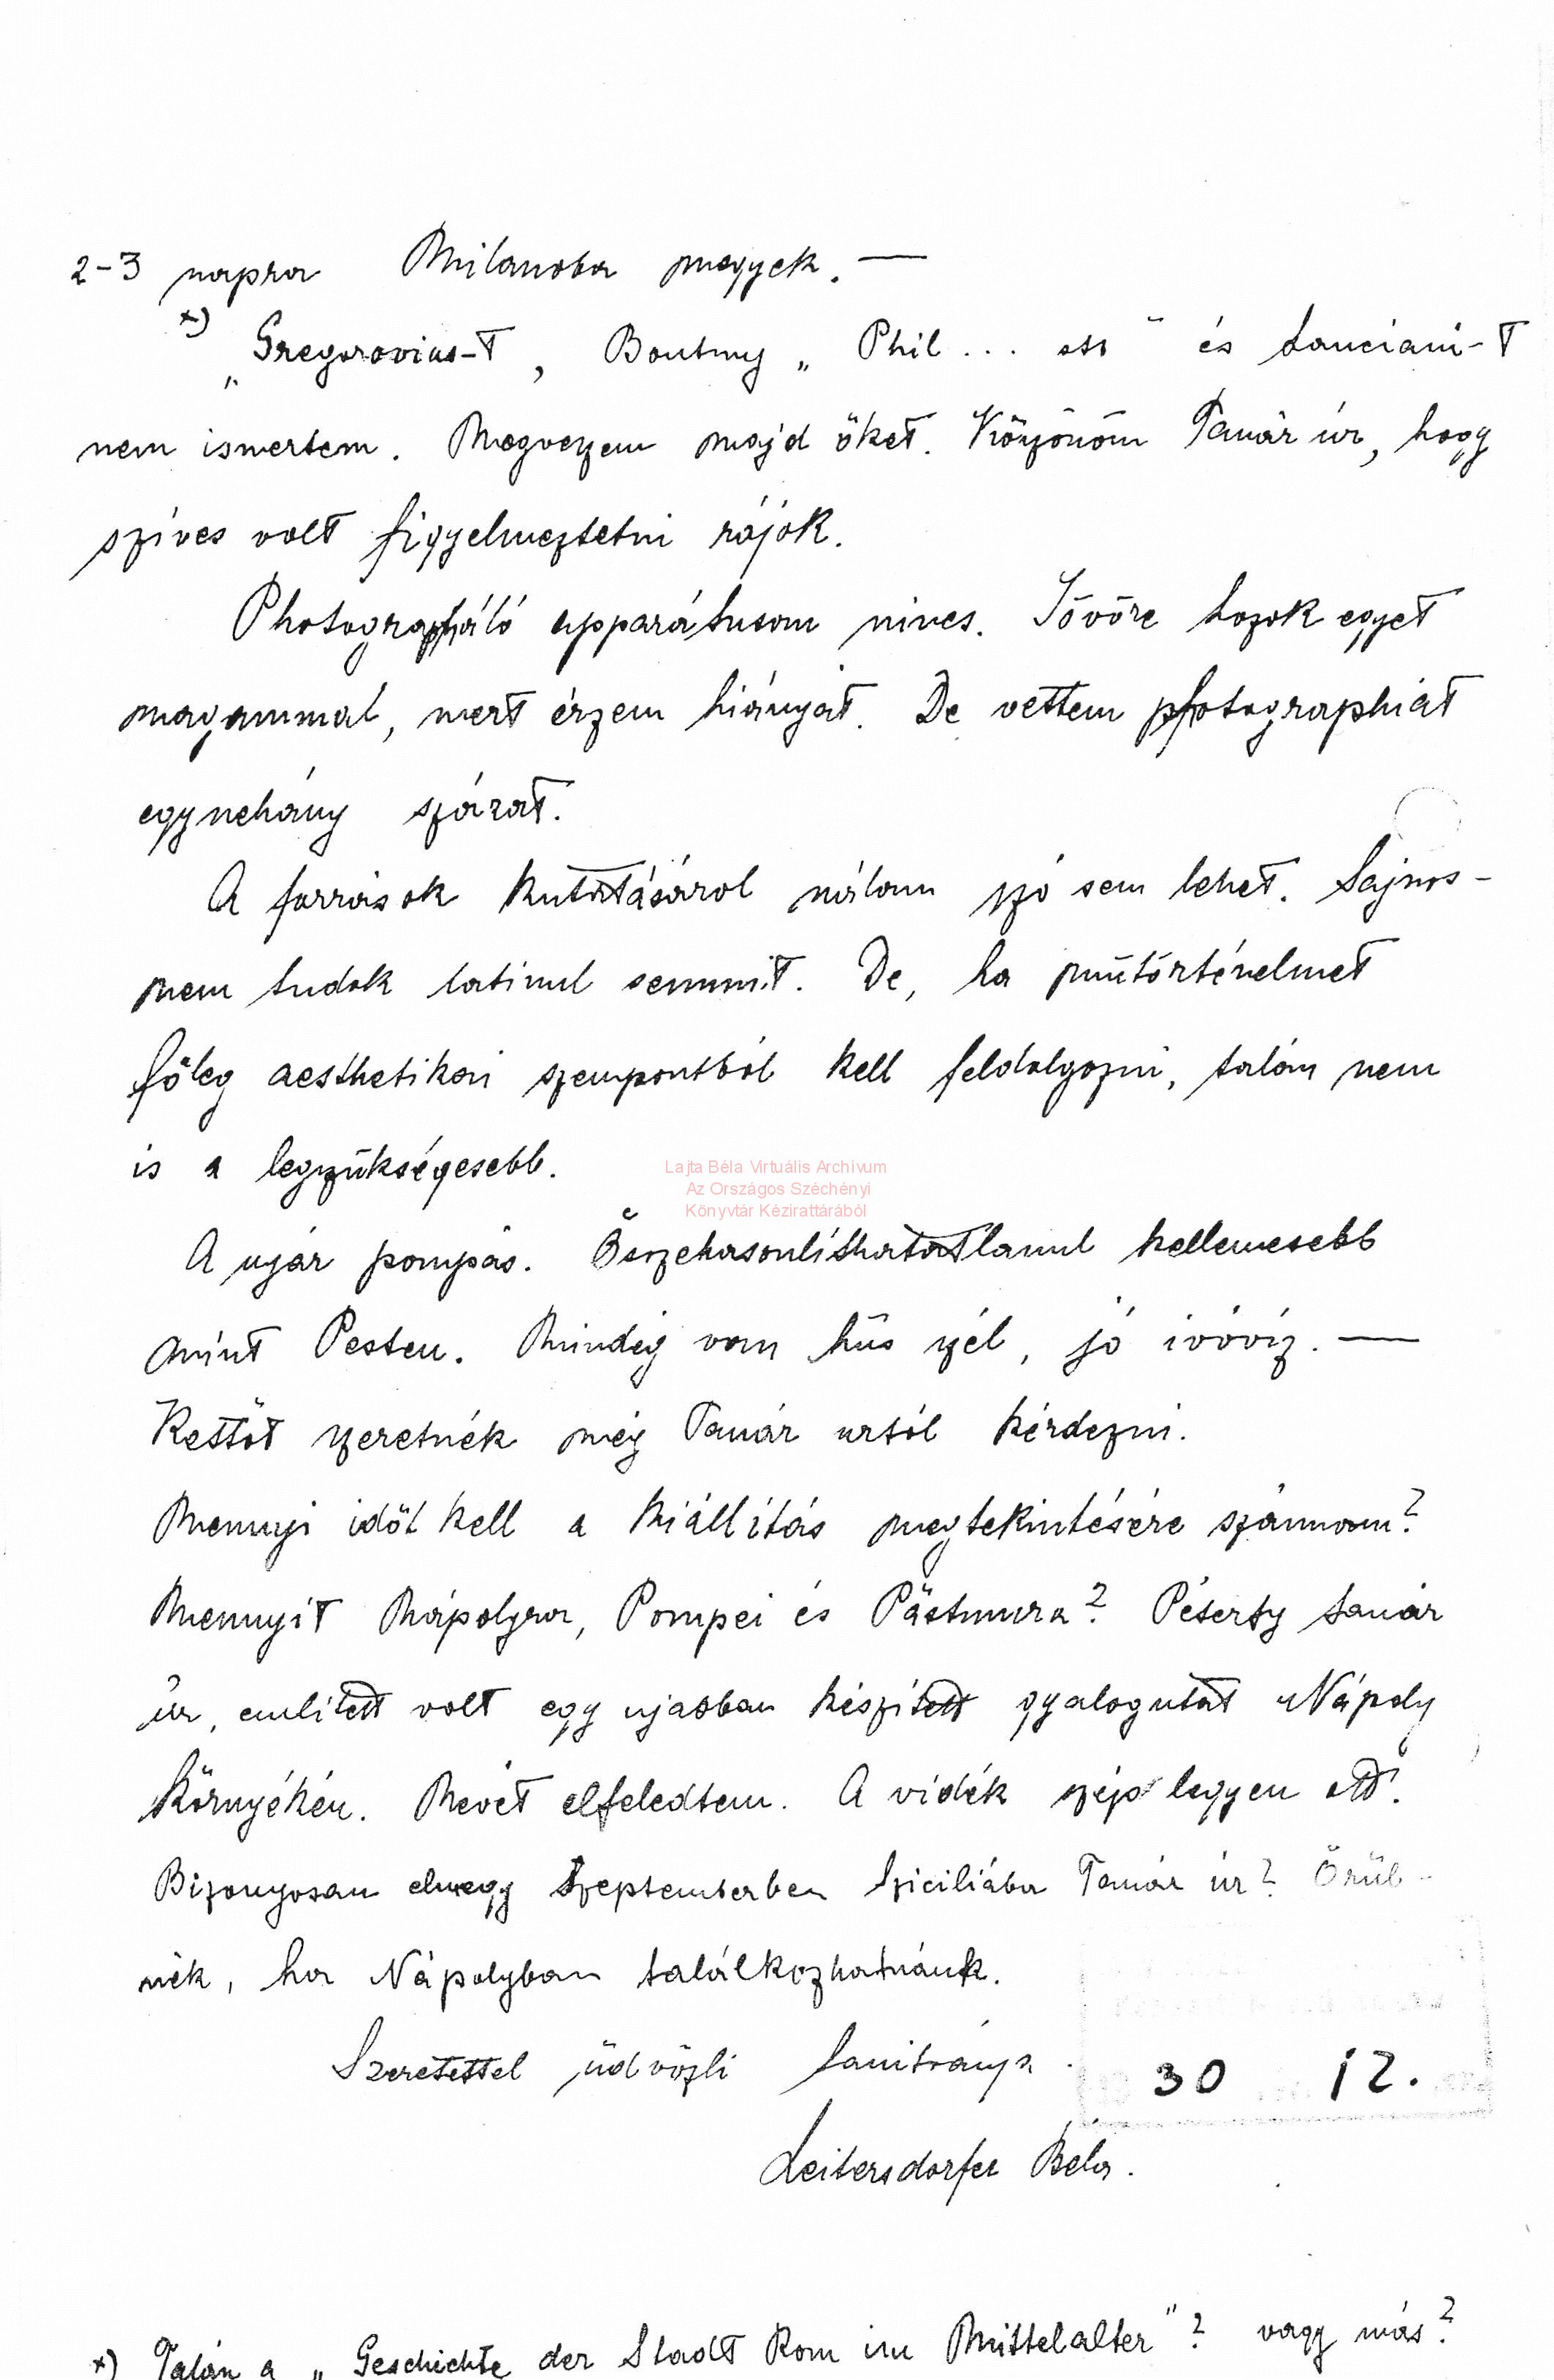 2-3 napra Milanoba megyek. —
x) „Gregorovius-t, Boutmy „Phil... ett" és Lanciani-t
nem ismertem. Megveszem majd őket. Köszönöm Tanár úr, hogy
szíves volt figyelmeztetni rájok.
Photographáló apparátusom nincs. Jövőre hozok egyet
magammal, mert érzem hiányát. De vettem photographiát
egynehány százat.
A források kutatásáról nálam szó sem lehet. Sajnos-
nem tudok latinul semmit. De, ha műtörténelmet
főleg aesthetikai szempontból kell feldolgozni, talán nem
is a legszükségesebb.
Lajta Béla Virtuális Archívum
Az Országos Széchényi
Könyvtár Kézirattárából
A nyár pompás. Összehasonlíthatatlanul kellemesebb
mint Pesten. Mindég van hűs szél, jó ivóvíz. —
Kettőt szeretnék még Tanár urtól kérdezni.
Mennyi időt kell a kiállítás megtekintésére szánnom?
Mennyit Nápolyra, Pompei és Pästumra? Péterfy tanár
úr, említett volt egy ujabban készített gyalogutat Nápoly
környékén. Nevét elfeledtem. A vidék szép legyen ott?
Bizonyosan elmegy Szeptemberben Sziciliába Tanár úr? Örül-
nék, ha Nápolyban találkozhatnánk.
Szeretettel üdvözli tanitványa
30 12.
Leitersdorfer Béla.
x) Talán a „Geschichte der Stadt Rom im Mittelalter"? vagy más?